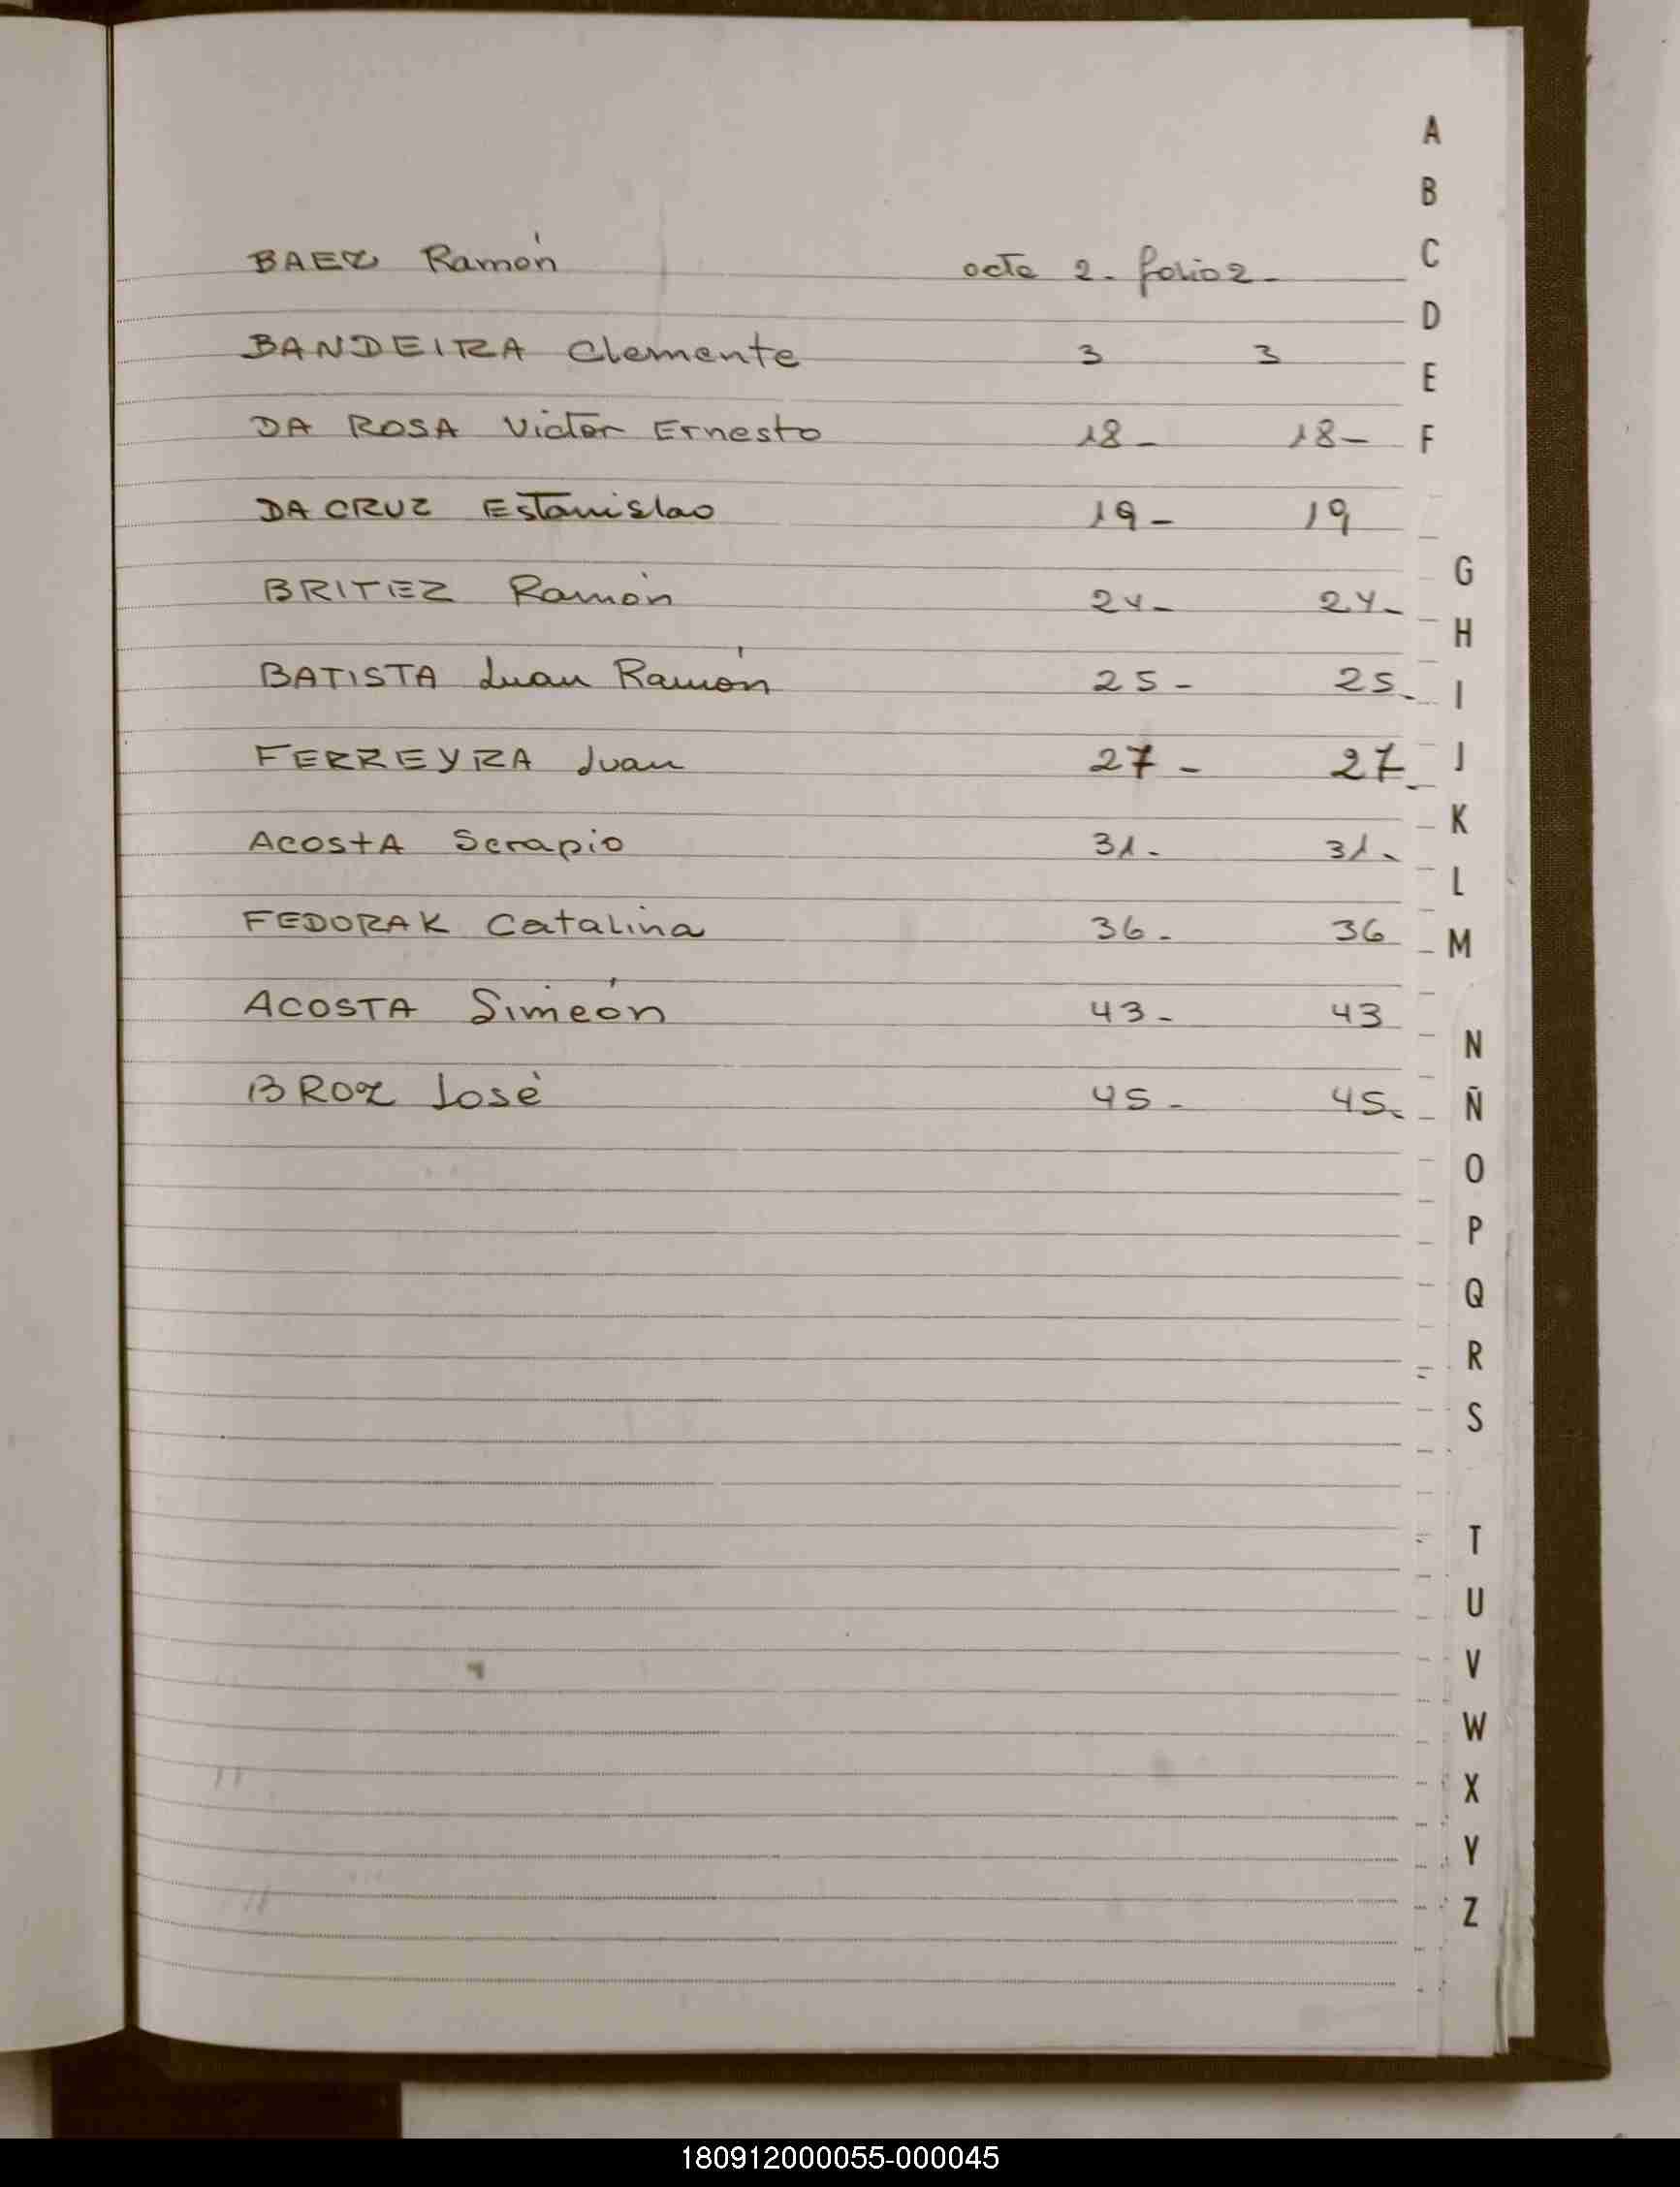 A
B
BAEZ Ramón acta 2. folio 2- C
D
BANDEIRA Clemente 3 3
E
DA ROSA Victor Ernesto 18- 18- F
DA CRUZ Estanislao 19- 19
G
BRITEZ Ramón 24- 24-
H
BATISTA Juan Ramón 25- 25- I
FERREYRA Juan 27- 27- J
K
ACOSTA Serapio 31- 31-
L
FEDORAK Catalina 36- 36 M
ACOSTA Simeón 43- 43
N
BROZ José 45- 45- Ñ
O
P
Q
R
S
T
U
V
W
X
Y
Z
180912000055-000045